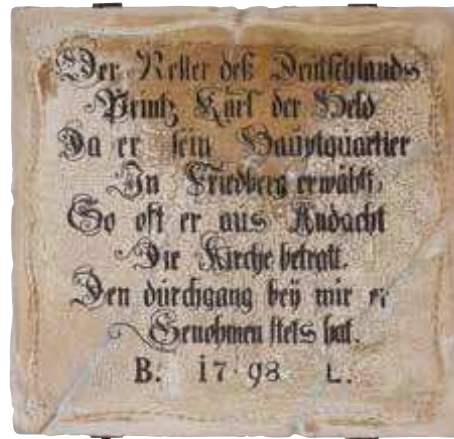 Der Retter deß Deutschlands
Printz Karl der Held
Da er sein Hauptquartier
In Friedberg erwählt,
So oft er aus Andacht
Die Kirche betratt.
Den dürchgang beÿ mir er
Genohmen stets hat.
B. 17·98 L.